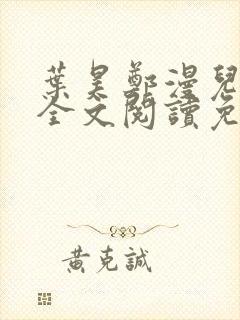 葉昊鄭漫兒
全文閱讀免
黃克誠